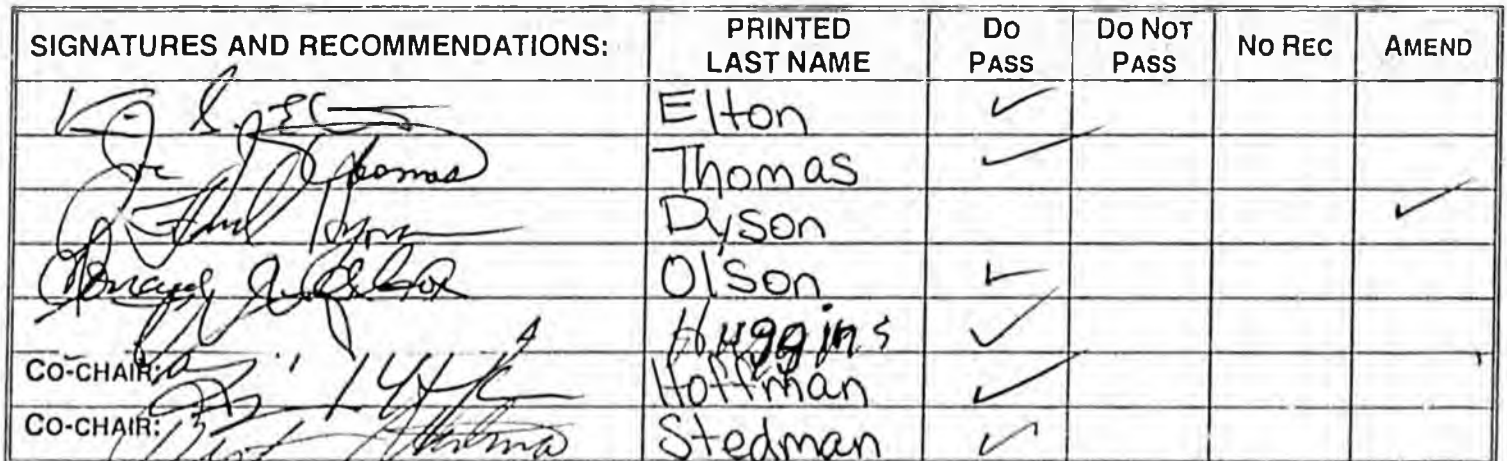 SIGNATURES AND RECOMMENDATIONS: PRINTED LAST NAME DO PASS DO NOT PASS NO REC AMEND
Elton ✓
Thomas Thomas ✓
Dyson ✓
Olson ✓
Huggins ✓
CO-CHAIR: Hoffman ✓
CO-CHAIR: Stedman ✓